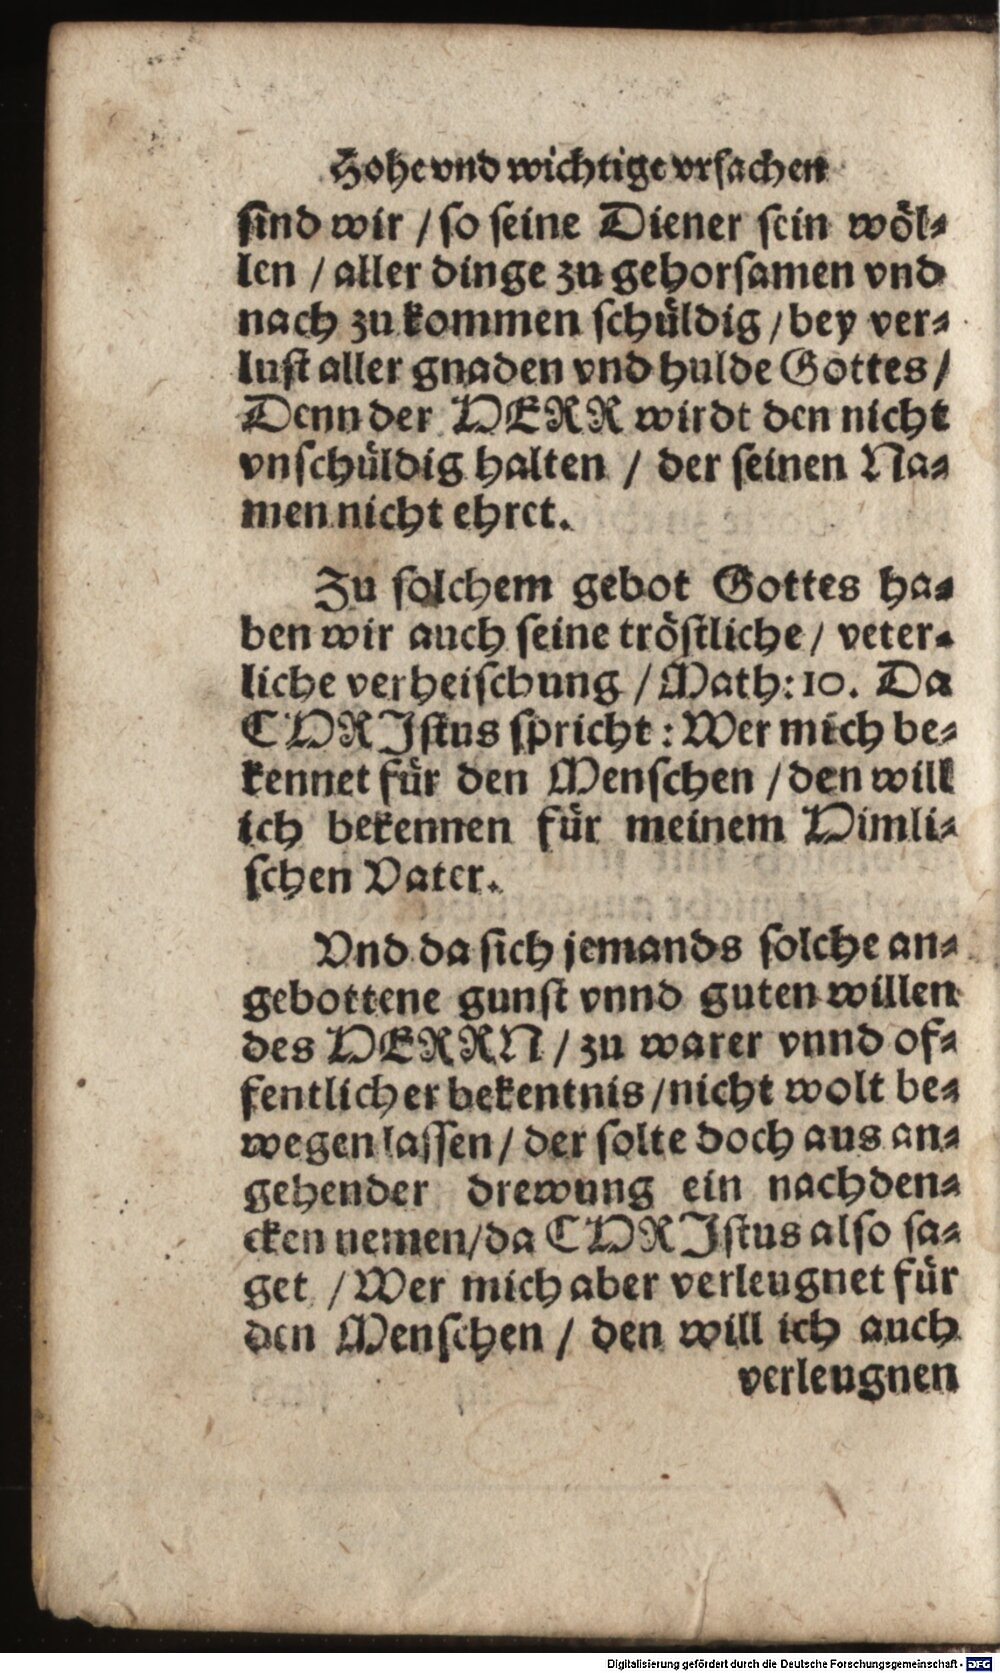 Hohe vnd wichtige vrsachen
sind wir / so seine Diener sein wöl-
len / aller dinge zu gehorsamen vnd
nach zu kommen schüldig / bey ver-
lust aller gnaden vnd hulde Gottes /
Denn der HERR wirdt den nicht
vnschüldig halten / der seinen Na-
men nicht ehret.
Zu solchem gebot Gottes ha-
ben wir auch seine tröstliche / veter-
liche verheischung / Math: 10. Da
CHRIstus spricht: Wer mich be-
kennet für den Menschen / den will
ich bekennen für meinem Himli-
schen Vater.
Vnd da sich jemands solche an-
gebottene gunst vnnd guten willen
des HERRN / zu warer vnnd of-
fentlicher bekentnis / nicht wolt be-
wegen lassen / der solte doch aus an-
gehender drewung ein nachden-
cken nemen / da CHRIstus also sa-
get / Wer mich aber verleugnet für
den Menschen / den will ich auch
verleugnen
Digitalisierung gefördert durch die Deutsche Forschungsgemeinschaft - DFG